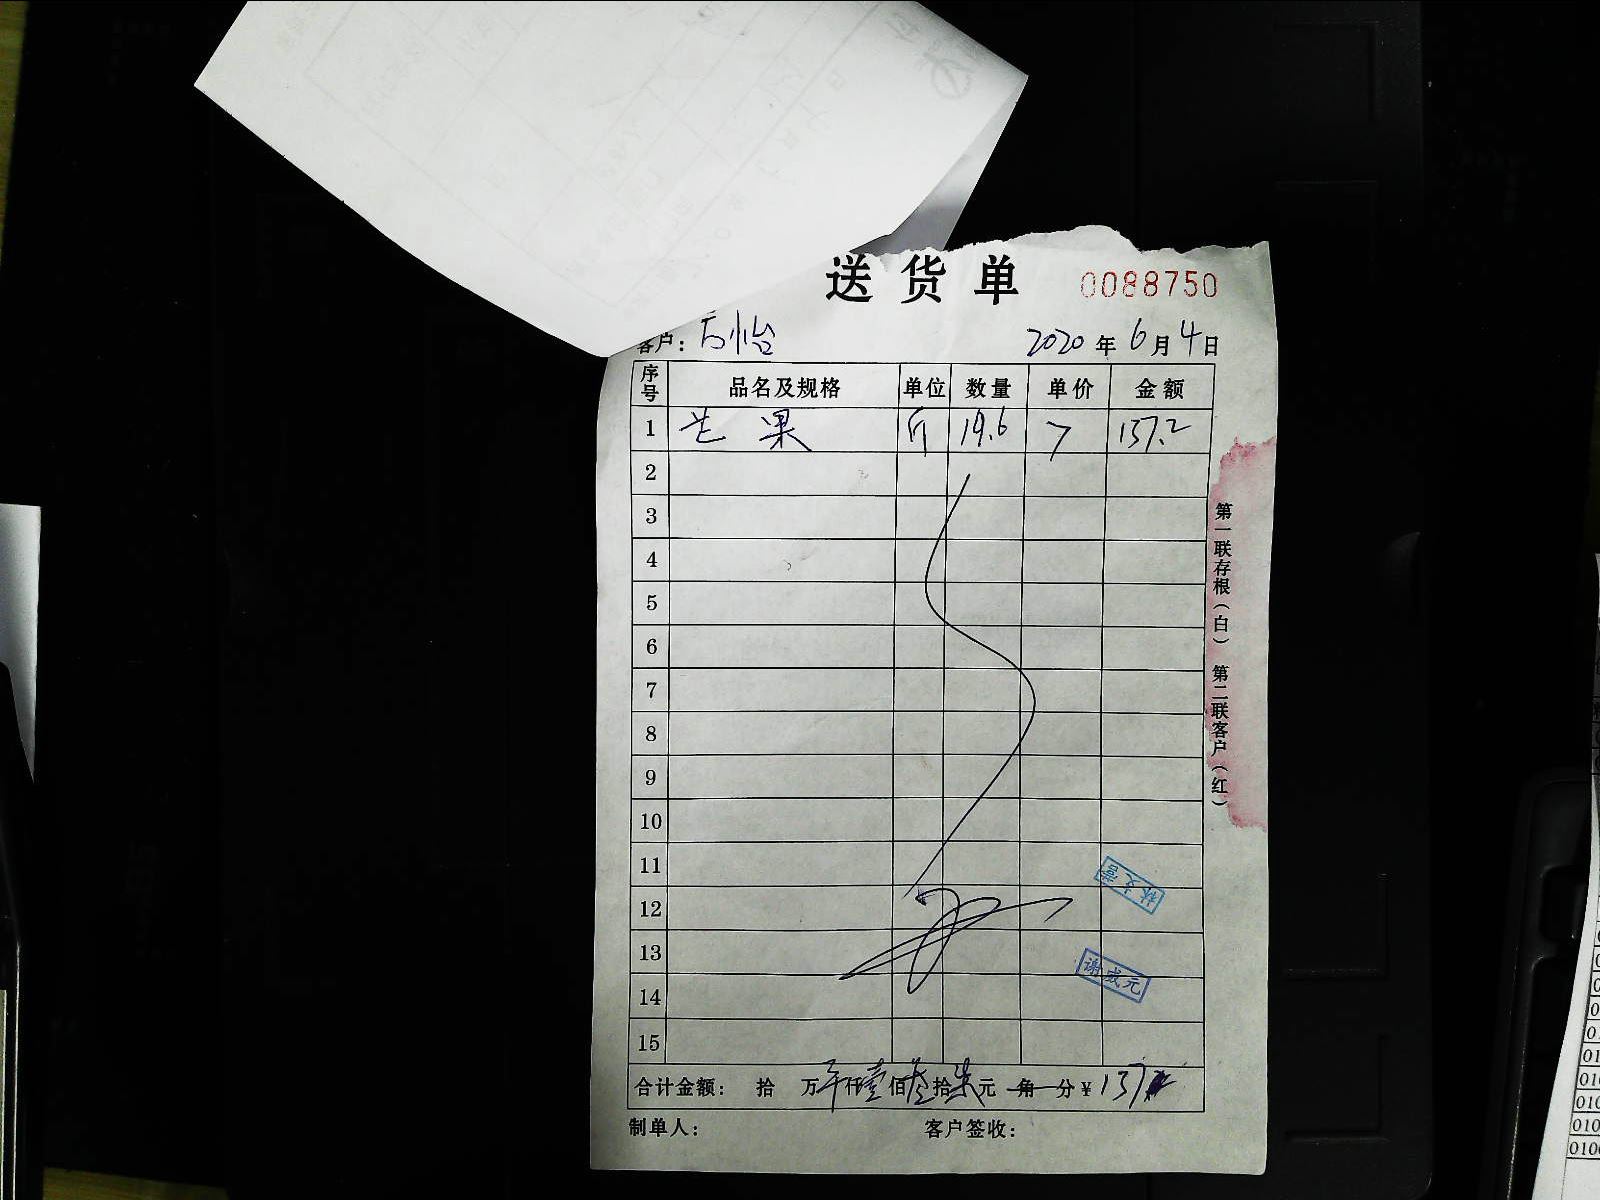 送货单 0088750
客户: 2020年6月4日
序号 品名及规格 单位 数量 单价 金额
1 芒果 斤 19.6 7 137.2
2
3
4
5
6
7
8
9
10
11
12
13
14
15
谢成元
合计金额: 拾 万 仟壹佰叁拾柒元 角 分 ¥137
制单人: 客户签收:
第一联存根(白) 第二联客户(红)